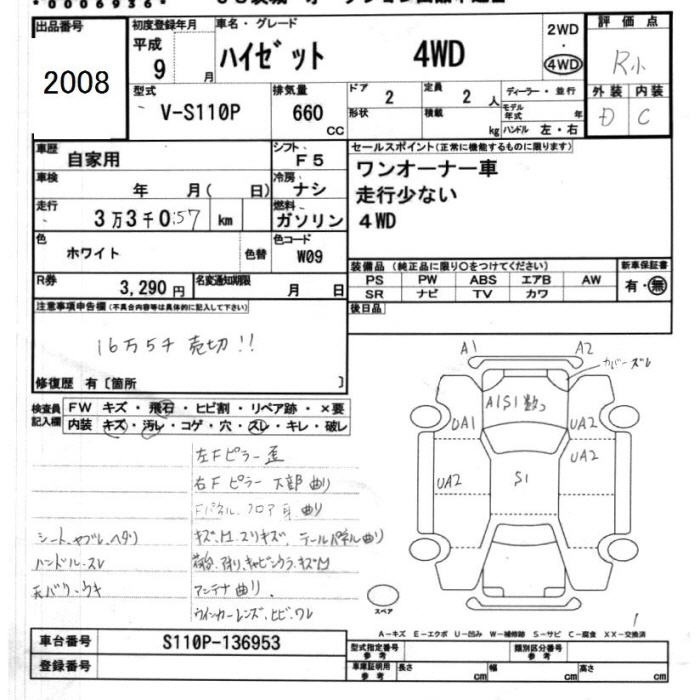 00006936
出品番号 初度登録年月 車名・グレード 2WD 評価点
2008 平成 9 月 ハイゼット 4WD ・ 4WD R小
型式 排気量 ドア 2 定員 2 人 ディーラー・並行 外装 内装
V-S110P 660 CC 形状 積載 kg モデル年式 年 D C
ハンドル 左・右
車歴 自家用 シフト F5 セールスポイント(正常に機能するものに限ります)
車検 年 月( 日) 冷房 ナシ ワンオーナー車
走行 3万3千0:57 km 燃料 ガソリン 走行少ない
4WD
色 ホワイト 色替 色コード W09
装備品 (純正品に限り○をつけてください) 新車保証書
R券 3,290円 名変通知期限 月 日 PS PW ABS エアB AW 有・無
SR ナビ TV カワ
注意事項申告欄(不具合内容等は具体的に記入して下さい) 後日品
16万5千 売切!!
修復歴 有〔箇所 〕
検査員記入欄 FW キズ・飛石・ヒビ割・リペア跡・×要
内装 キズ・汚レ・コゲ・穴・スレ・キレ・破レ
A1 A2
カバーズレ
A1S1数コ
UA1 UA2
UA2 S1 UA2
左Fピラー歪
右Fピラー下部曲り
Fパネル、フロア 曲り
シート、ヤブレ、ヘタリ キズ、凹、スリキズ、テールパネル曲り
ハンドル・スレ
天バリ・ウキ アンテナ曲り、
ウインカーレンズ、ヒビ、ワレ
スペア
A-キズ E-エクボ U-凹み W-補修跡 S-サビ C-腐食 XX-交換済
車台番号 S110P-136953 型式指定番号 参考 類別区分番号 参考
登録番号 車庫証明用 参考 長さ cm 幅 cm 高さ cm